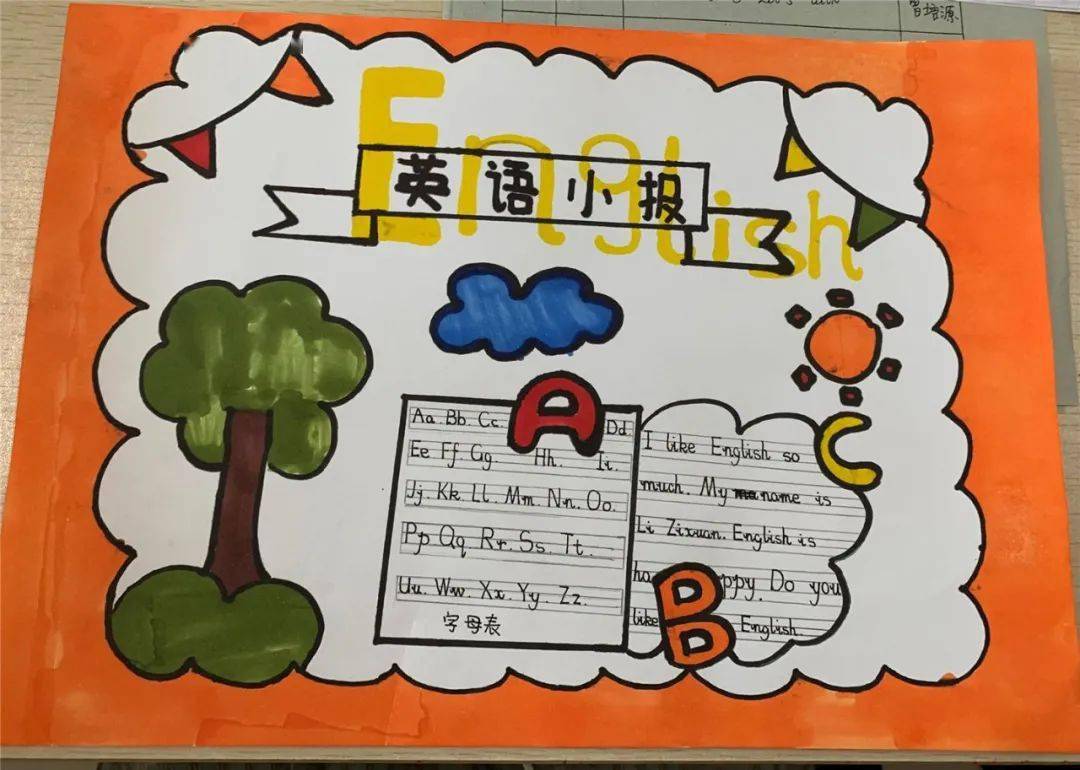 曾培源
English
英语小报
A
Aa. Bb. Cc. Dd.
Ee Ff. Gg Hh. Ii.
Jj. Kk. Ll. Mm. Nn. Oo.
Pp Qq Rr. Ss. Tt.
Uu. Ww. Xx. Yy. Zz.
字母表
C
I like English so
much. My name is
Li Zixuan. English is
ha ppy. Do you
like English.
B